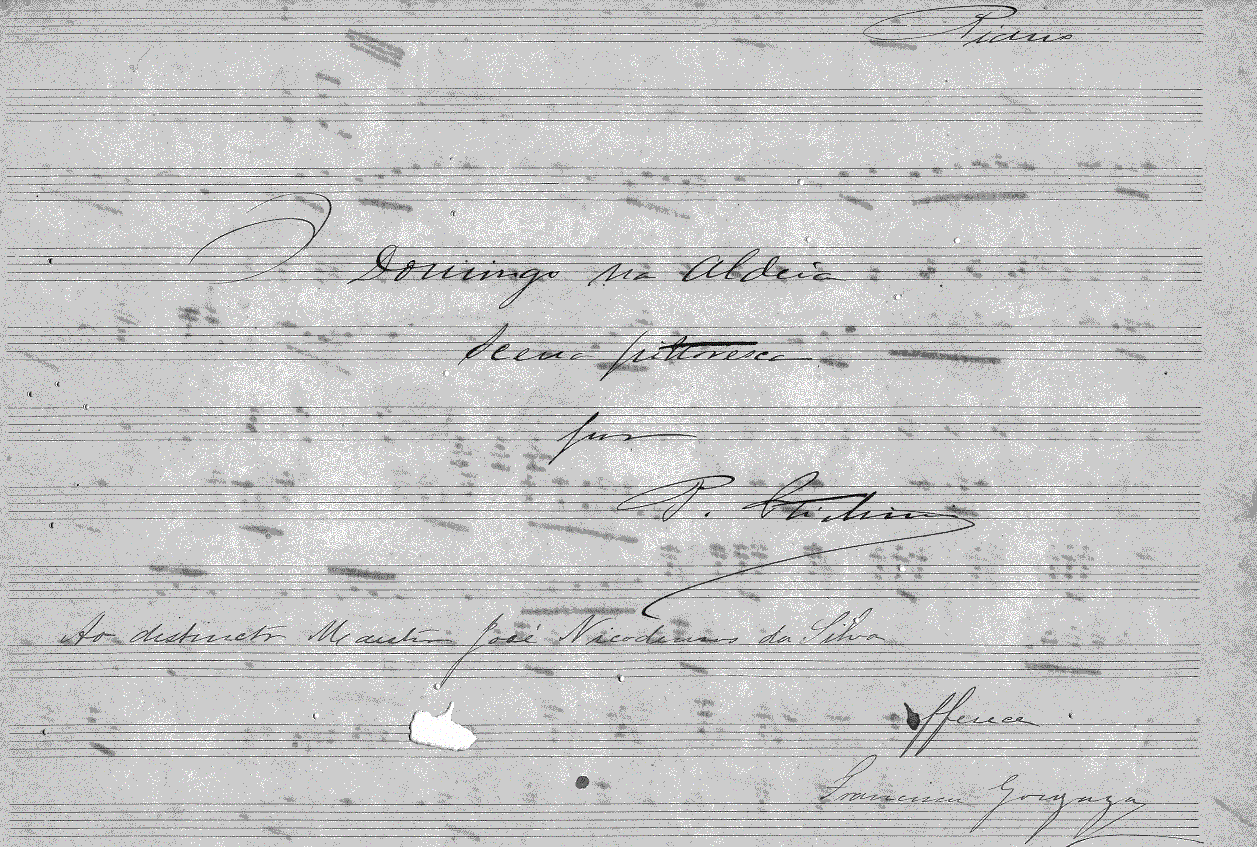 Piano
Domingo na Aldeia
Scena pittoresca
por
P.
Ao distincto Maestro José Nicodemus da Silva
Offerece
Francisco Gorgaza